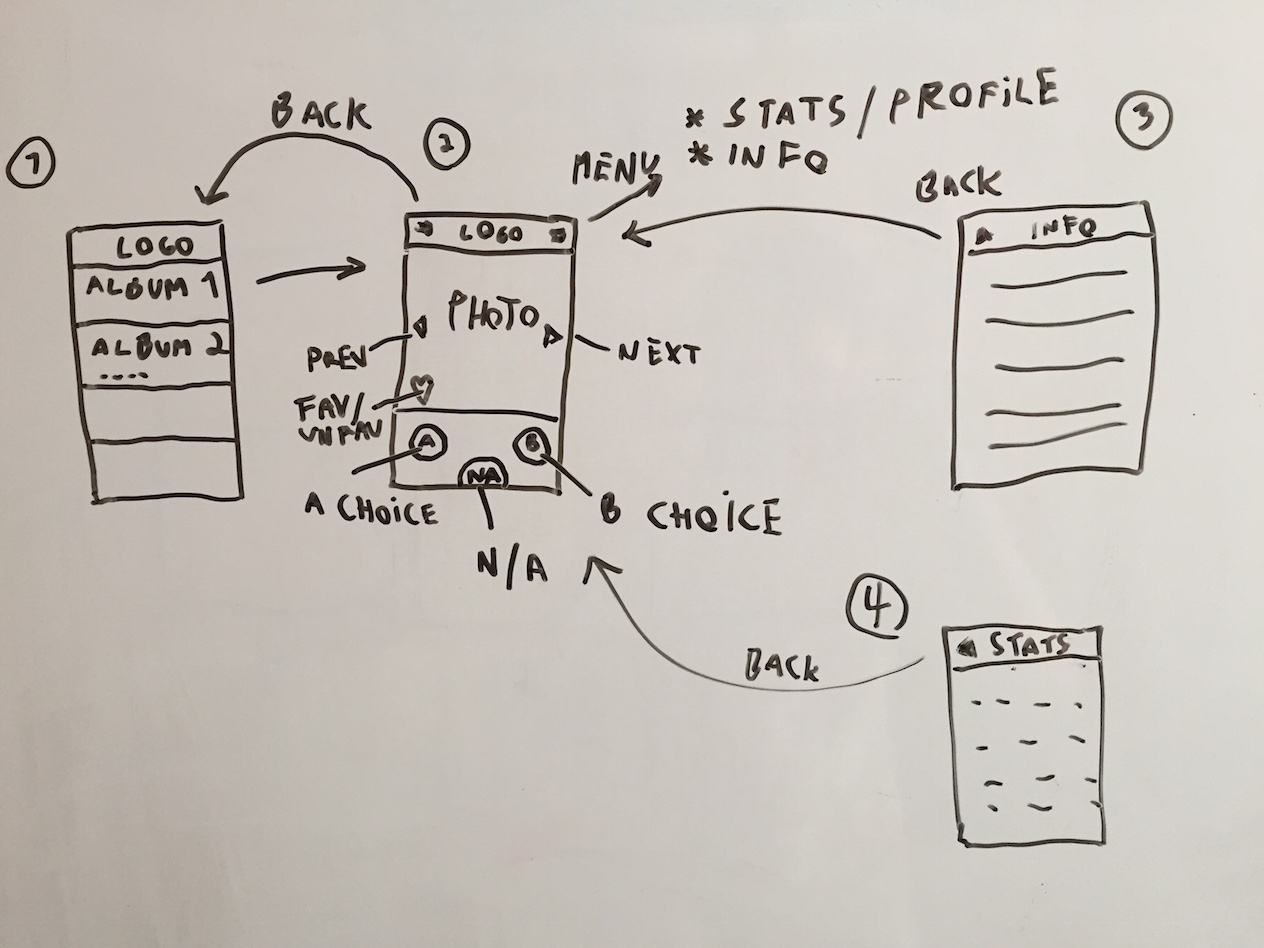 1
BACK
LOGO
ALBUM 1
ALBUM 2
....
2
LOGO
PHOTO
PREV
NEXT
FAV/
UNFAV
A
B
NA
A CHOICE
B CHOICE
N/A
MENU
* STATS/PROFILE
* INFO
3
BACK
INFO
4
BACK
STATS